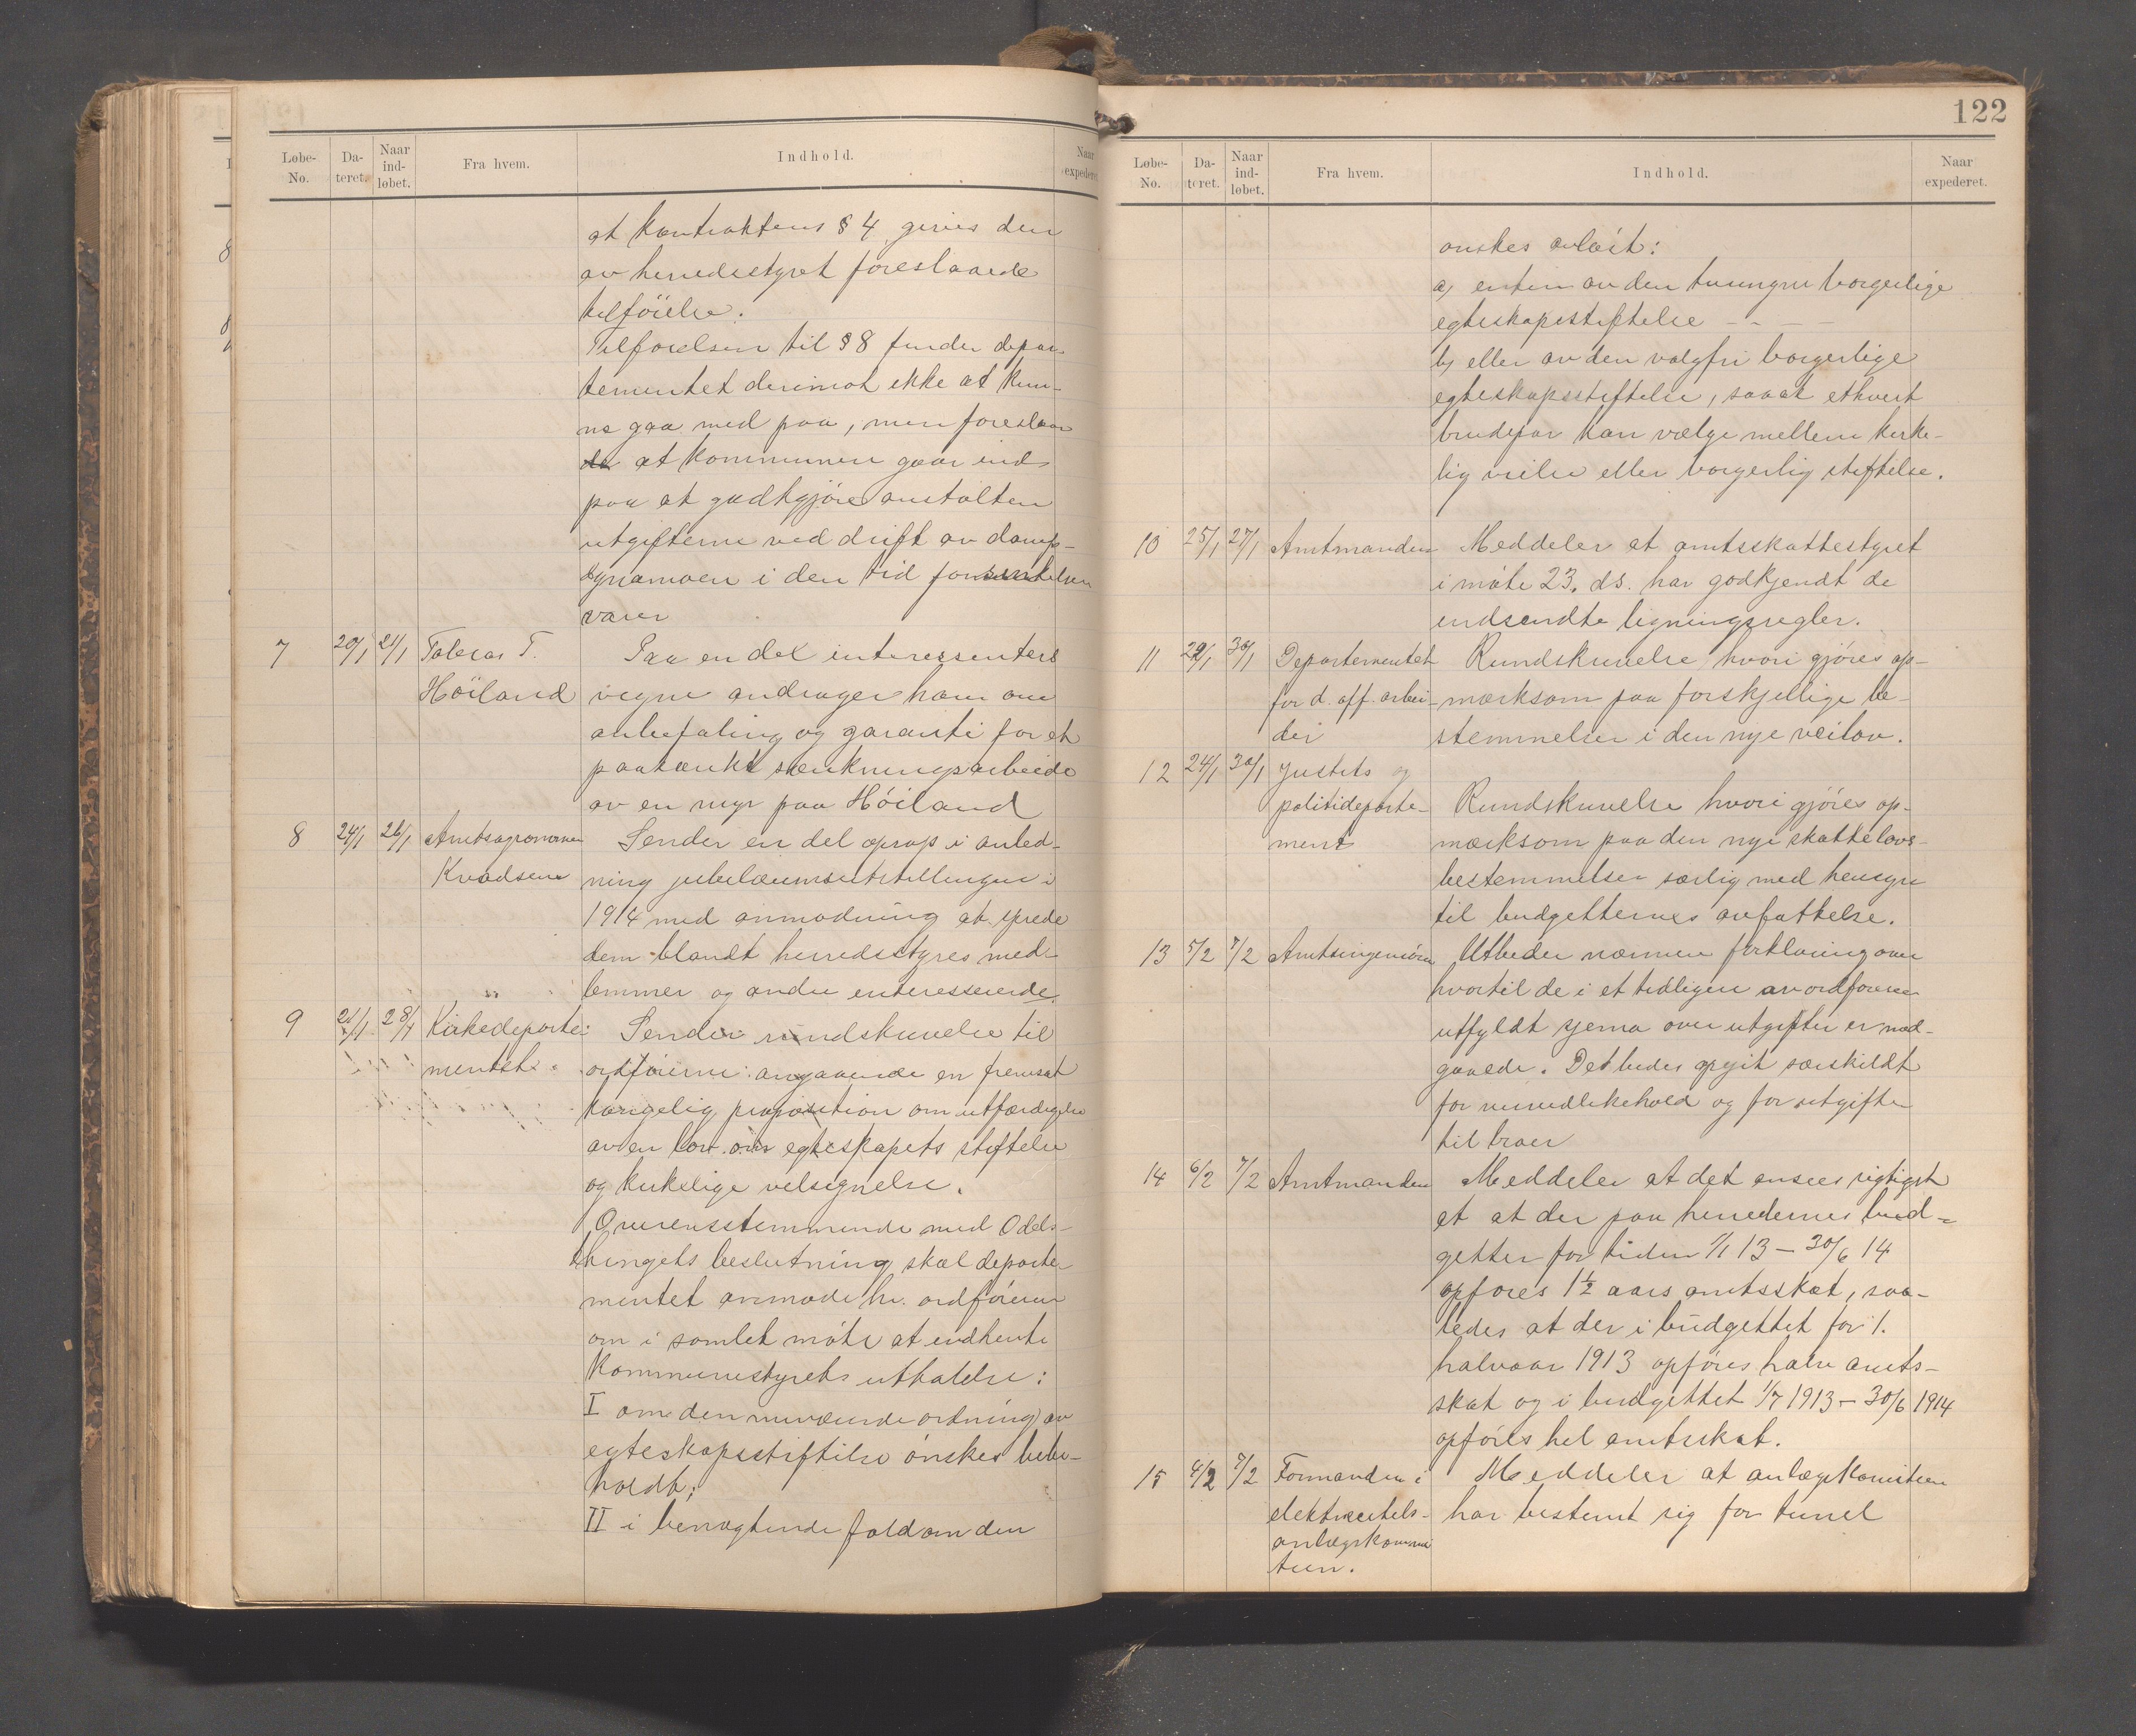 Løbe-No. Da-teret. Naar ind-løbet. Fra hvem. Indhold. Naar expederet
at kontraktens § 4 gives den
av herredsstyret foreslaaede
tilföielse.
Tilföielsen til § 8 finder depar-
tementet derimot ikke at kun-
ne gaa med paa, men foreslaar
at kommunen gaar ind
paa at godtgjöre anstalten
utgifterne ved drift av damp-
dynamoen i den tid forsinkelsen
varer
7 20/1 21/1 Tolleras T. Paa en del interessenters
Höiland vegne andrager han om
anbefaling og garanti for et
paatænkt sænkningsarbeide
av en myr paa Höiland
8 24/1 26/1 Amtsagronomen Sender en del oprop i anled-
Kvadsem ning jubilæumsutstillingen i
1914 med anmodning at sprede
dem blandt herredsstyres med-
lemmer og andre interesserede.
9 24/1 28/1 Kirkedeparte- Sender rundskrivelse til
mentet ordförerne angaaende en fremsat
kongelig proposition om utfærdigelse
av en lov om egteskapets stiftelse
og kirkelige velsignelse.
Overensstemmende med Odels-
thingets beslutning skal departe-
mentet anmode hr. ordföreren
om i samlet möte at indhente
kommunestyrets uttalelse:
I om den nuværende ordning av
egteskapsstiftelse önskes bibe-
holdt;
II i benegtende fald om den
122
Løbe-No. Da-teret. Naar ind-løbet. Fra hvem. Indhold. Naar expederet.
önskes avlöst:
a) enten av den tvungne borgerlige
egteskapsstiftelse - - - -
b) eller av den valgfri borgerlige
egteskapsstiftelse, saa at ethvert
brudepar kan vælge mellem kirke-
lig vielse eller borgerlig stiftelse.
10 25/1 27/1 Amtmanden Meddeler at amtsskattestyret
i möte 23. ds. har godkjendt de
indsendte ligningsregler.
11 29/1 30/1 Departementet Rundskrivelse hvori gjöres op-
for d. off. arbei- merksom paa forskjellige be-
der stemmelser i den nye veilov.
12 24/1 30/1 Justits og
politideparte- Rundskrivelse hvori gjöres op-
ment merksom paa den nye skattelovs-
bestemmelser særlig med hensyn
til budgetternes avfattelse.
13 5/2 7/2 Amtsingeniören Utbeder nærmere forklaring over
hvortil de i et tidligere av ordföreren
utfyldt sjema over utgifter er med-
gaaede. Det bedes opgit særskildt
for veivedlikehold og for utgifter
til broer
14 6/2 7/2 Amtmanden Meddeler at det ansees rigtigst
et at der paa herredernes bud-
getter for tiden 1/1 13 - 30/6 14
opföres 1½ aars amtsskat, saa-
ledes at der i budgettet for 1.
halvaar 1913 opföres halv amts-
skat og i budgettet 1/7 1913 - 30/6 1914
opföres hel amtsskat.
15 4/2 7/2 Formanden i Meddeler at anlægskomiteen
elektricitets- har bestemt sig for tunel
anlægskommi
teen.